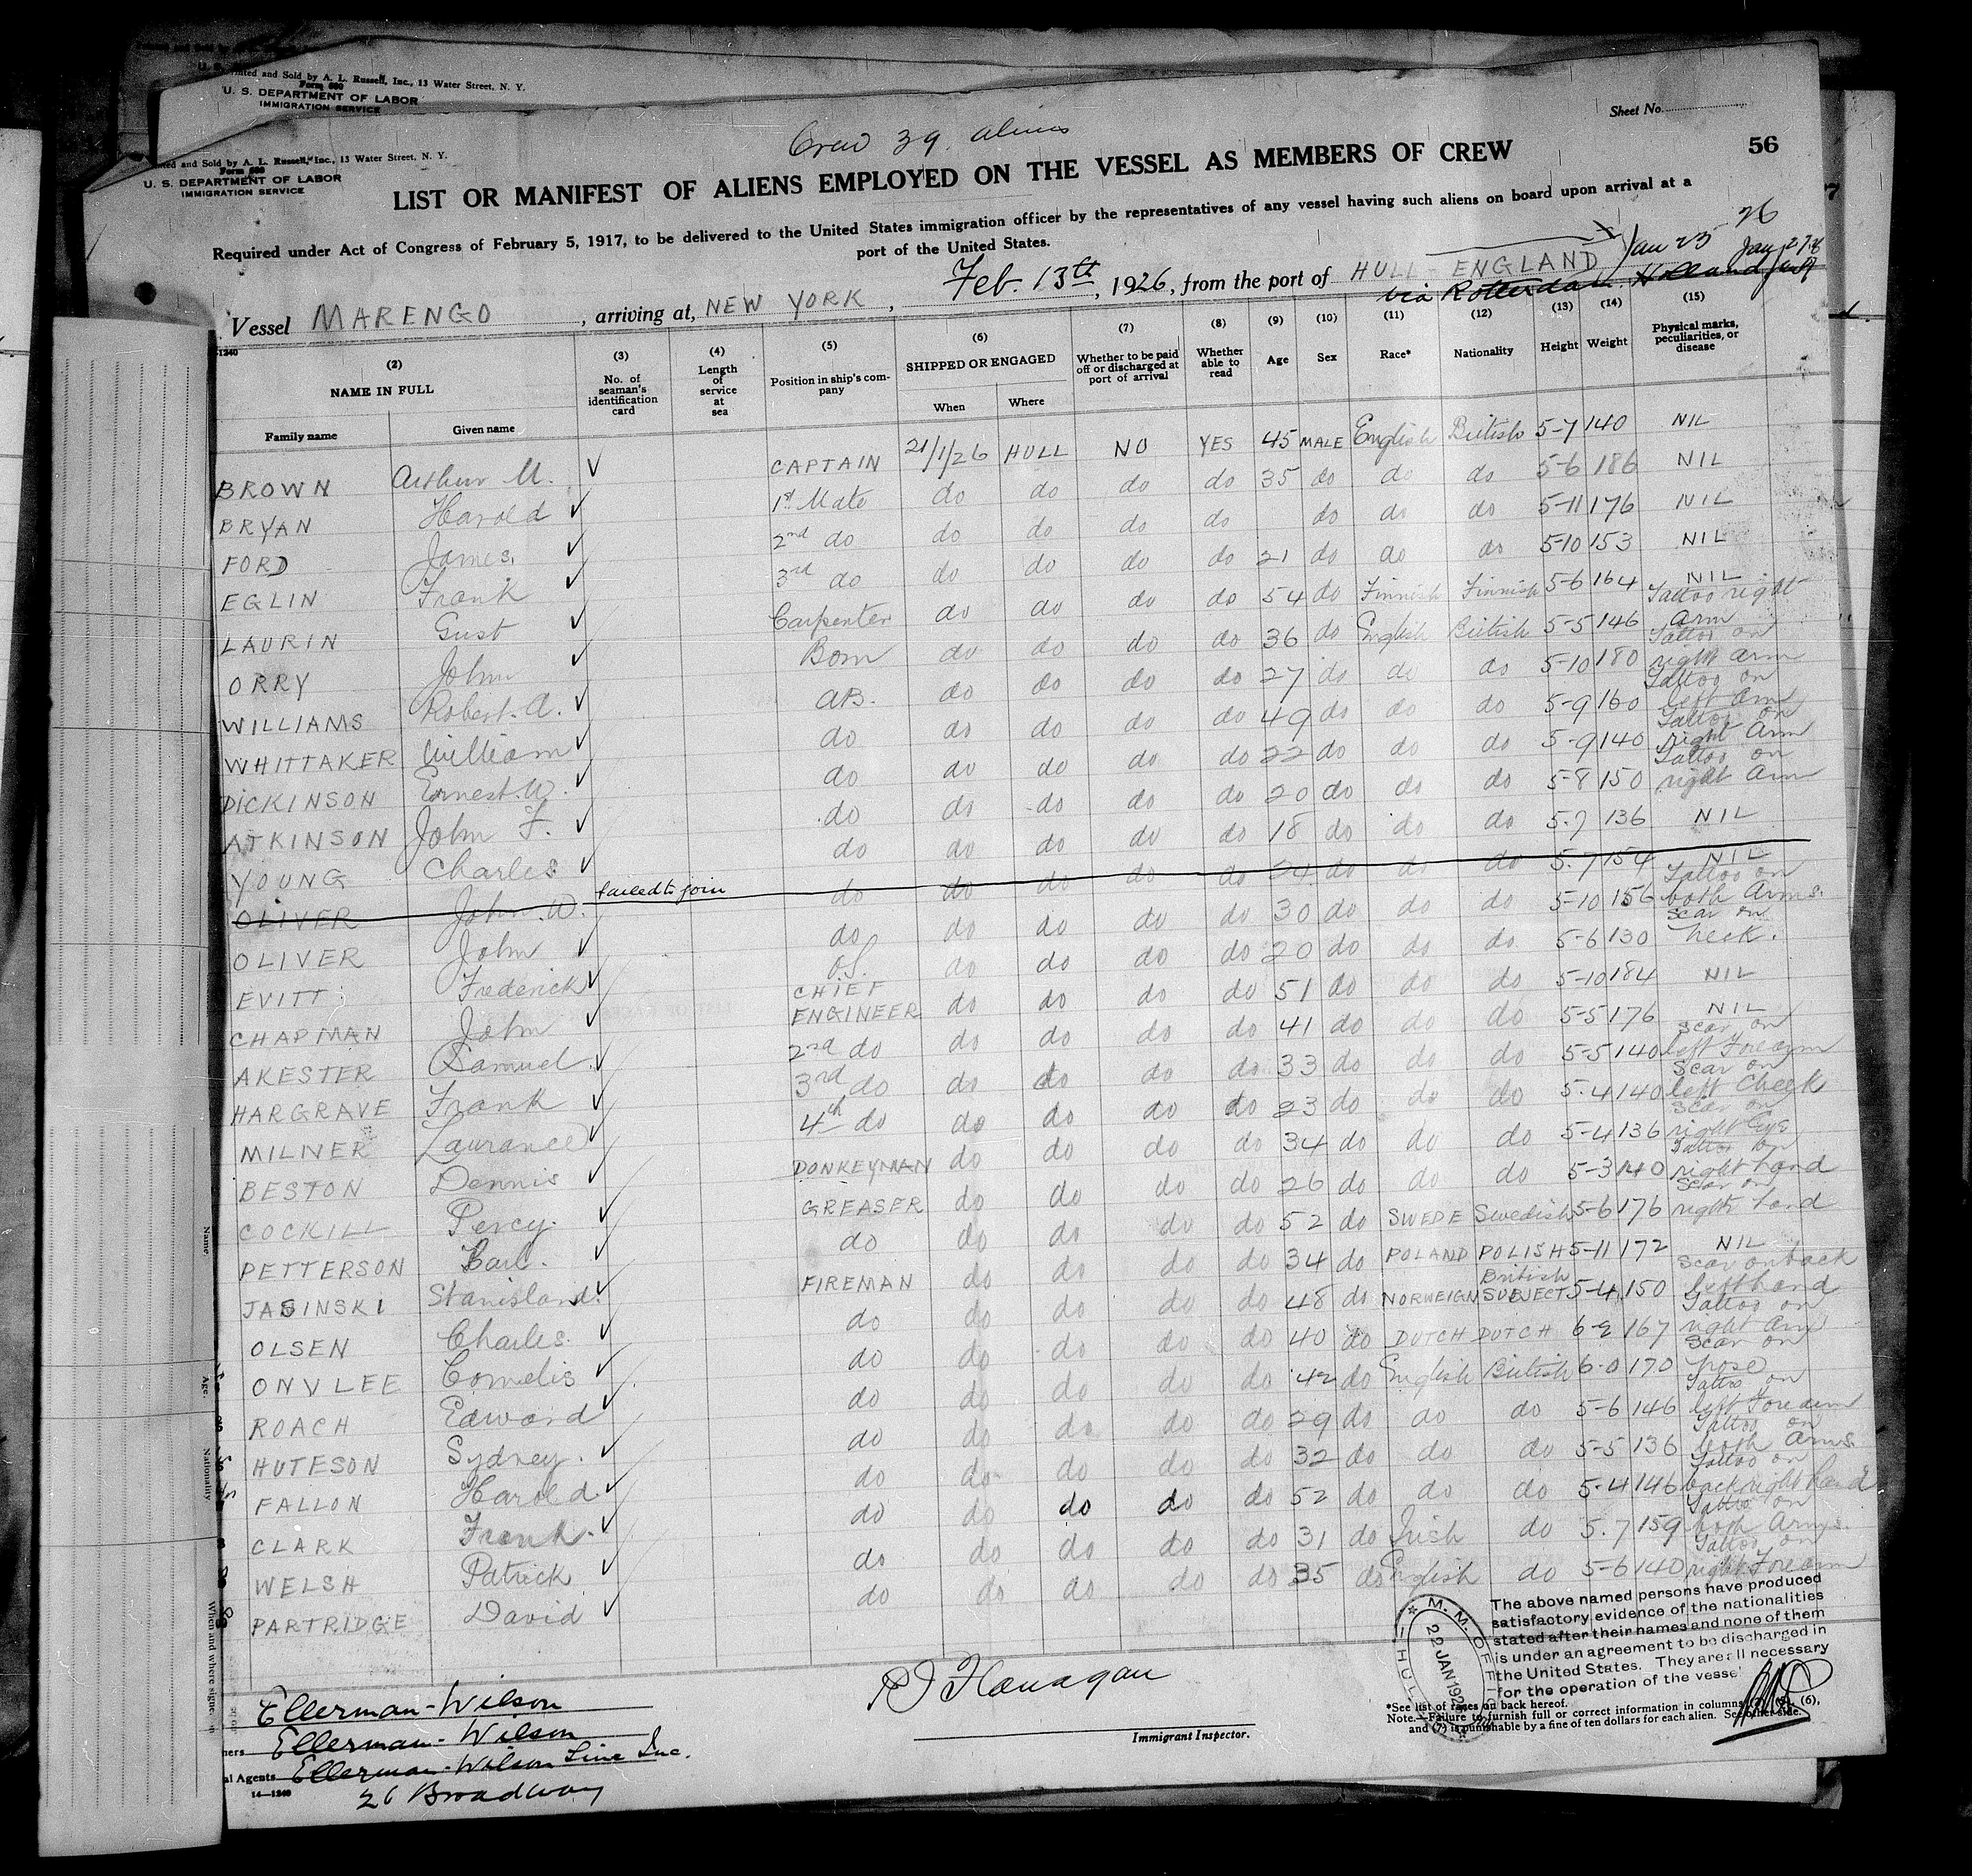 U. S. DEPARTMENT OF LABOR
IMMIGRATION SERVICE
Printed and Sold by A. L. Russell, Inc., 13 Water Street, N. Y.
Form 680
U. S. DEPARTMENT OF LABOR
IMMIGRATION SERVICE
Sheet No.
Crew 39 aliens
56
LIST OR MANIFEST OF ALIENS EMPLOYED ON THE VESSEL AS MEMBERS OF CREW
Required under Act of Congress of February 5, 1917, to be delivered to the United States immigration officer by the representatives of any vessel having such aliens on board upon arrival at a
port of the United States.
Jan 25 26
Vessel MARENGO, arriving at, NEW YORK, Feb. 13th, 1926, from the port of HULL - ENGLAND
via Rotterdam Holland
(2) (3) (4) (5) (6) (7) (8) (9) (10) (11) (12) (13) (14) (15)
NAME IN FULL No. of seaman's identification card Length of service at sea Position in ship's company SHIPPED OR ENGAGED Whether to be paid off or discharged at port of arrival Whether able to read Age Sex Race* Nationality Height Weight Physical marks, peculiarities, or disease
Family name Given name When Where
BROWN Arthur M. ✓ CAPTAIN 21/1/26 HULL NO YES 45 MALE English British 5-7 140 NIL
BRYAN Harold ✓ 1st Mate do do do do 35 do do do 5-6 186 NIL
FORD James ✓ 2nd do do do do do do do do 5-11 176 NIL
EGLIN Frank ✓ 3rd do do do do do 21 do do do 5-10 153 NIL
LAURIN Gust ✓ Carpenter do do do do 54 do Finnish Finnish 5-6 164 NIL
ORRY John ✓ Bosn do do do do 36 do English British 5-5 146 Tattoo right Arm
WILLIAMS Robert. A. ✓ AB. do do do do 27 do do do 5-10 180 Tattoo on right arm
WHITTAKER William ✓ do do do do do 49 do do do 5-9 160 Tattoo on left Arm
DICKINSON Ernest. W. ✓ do do do do do 22 do do do 5-9 140 Tattoo on right Arm
ATKINSON John F. ✓ do do do do do 20 do do do 5-8 150 Tattoo on right Arm
YOUNG Charles ✓ do do do do do 18 do do do 5-7 136 NIL
OLIVER John. W. failed to join do do do do do 24 do do do 5-7 154 NIL
OLIVER John ✓ do do do do do 30 do do do 5-10 156 Tattoo on both Arms.
EVITT Frederick ✓ O.S. do do do do 20 do do do 5-6 130 Scar on neck.
CHAPMAN John ✓ CHIEF ENGINEER do do do do 51 do do do 5-10 184 NIL
AKESTER Samuel ✓ 2nd do do do do do 41 do do do 5-5 176 NIL
HARGRAVE Frank ✓ 3rd do do do do do 33 do do do 5-5 140 Scar on left Forearm
MILNER Laurance ✓ 4th do do do do do 23 do do do 5-4 140 Scar on left Cheek
BESTON Dennis ✓ DONKEYMAN do do do do 34 do do do 5-4 136 Scar on right Eye
COCKILL Percy ✓ GREASER do do do do 26 do do do 5-3 140 Tattoo on right hand
PETTERSON Carl. ✓ do do do do do 52 do SWEDE Swedish 5-6 176 Scar on right hand
JASINSKI Stanisland. ✓ FIREMAN do do do do 34 do POLAND POLISH 5-11 172 NIL
OLSEN Charles. ✓ do do do do do 48 do NORWEIGN British SUBJECT 5-4 150 Scar on back left hand
ONVLEE Cornelis ✓ do do do do do 40 do DUTCH DUTCH 6-2 167 Tattoo on right arm
ROACH Edward ✓ do do do do do 42 do English British 6-0 170 Scar on nose
HUTESON Sydney. ✓ do do do do do 29 do do do 5-6 146 Tattoo on left Forearm
FALLON Harold ✓ do do do do do 32 do do do 5-5 136 Tattoo on both Arms.
CLARK Frank. ✓ do do do do do 52 do do do 5-4 146 Tattoo on back right hand
WELSH Patrick ✓ do do do do do 31 do Irish do 5-7 159 Tattoo on both Arms.
PARTRIDGE David ✓ do do do do do 35 do English do 5-6 140 Tattoo on right Forearm
The above named persons have produced
satisfactory evidence of the nationalities
stated after their names and none of them
is under an agreement to be discharged in
the United States. They are all necessary
for the operation of the vessel
M. M. OFFICE HULL
22 JAN 1926
Ellerman-Wilson
Ellerman-Wilson
Ellerman-Wilson Line Inc.
26 Broadway
14—1240
Flanagan
Immigrant Inspector.
*See list of races on back hereof.
Note.—Failure to furnish full or correct information in columns (2), (5), (6),
and (7) is punishable by a fine of ten dollars for each alien. See other side.
Name
Age.
Nationality
When and where signe